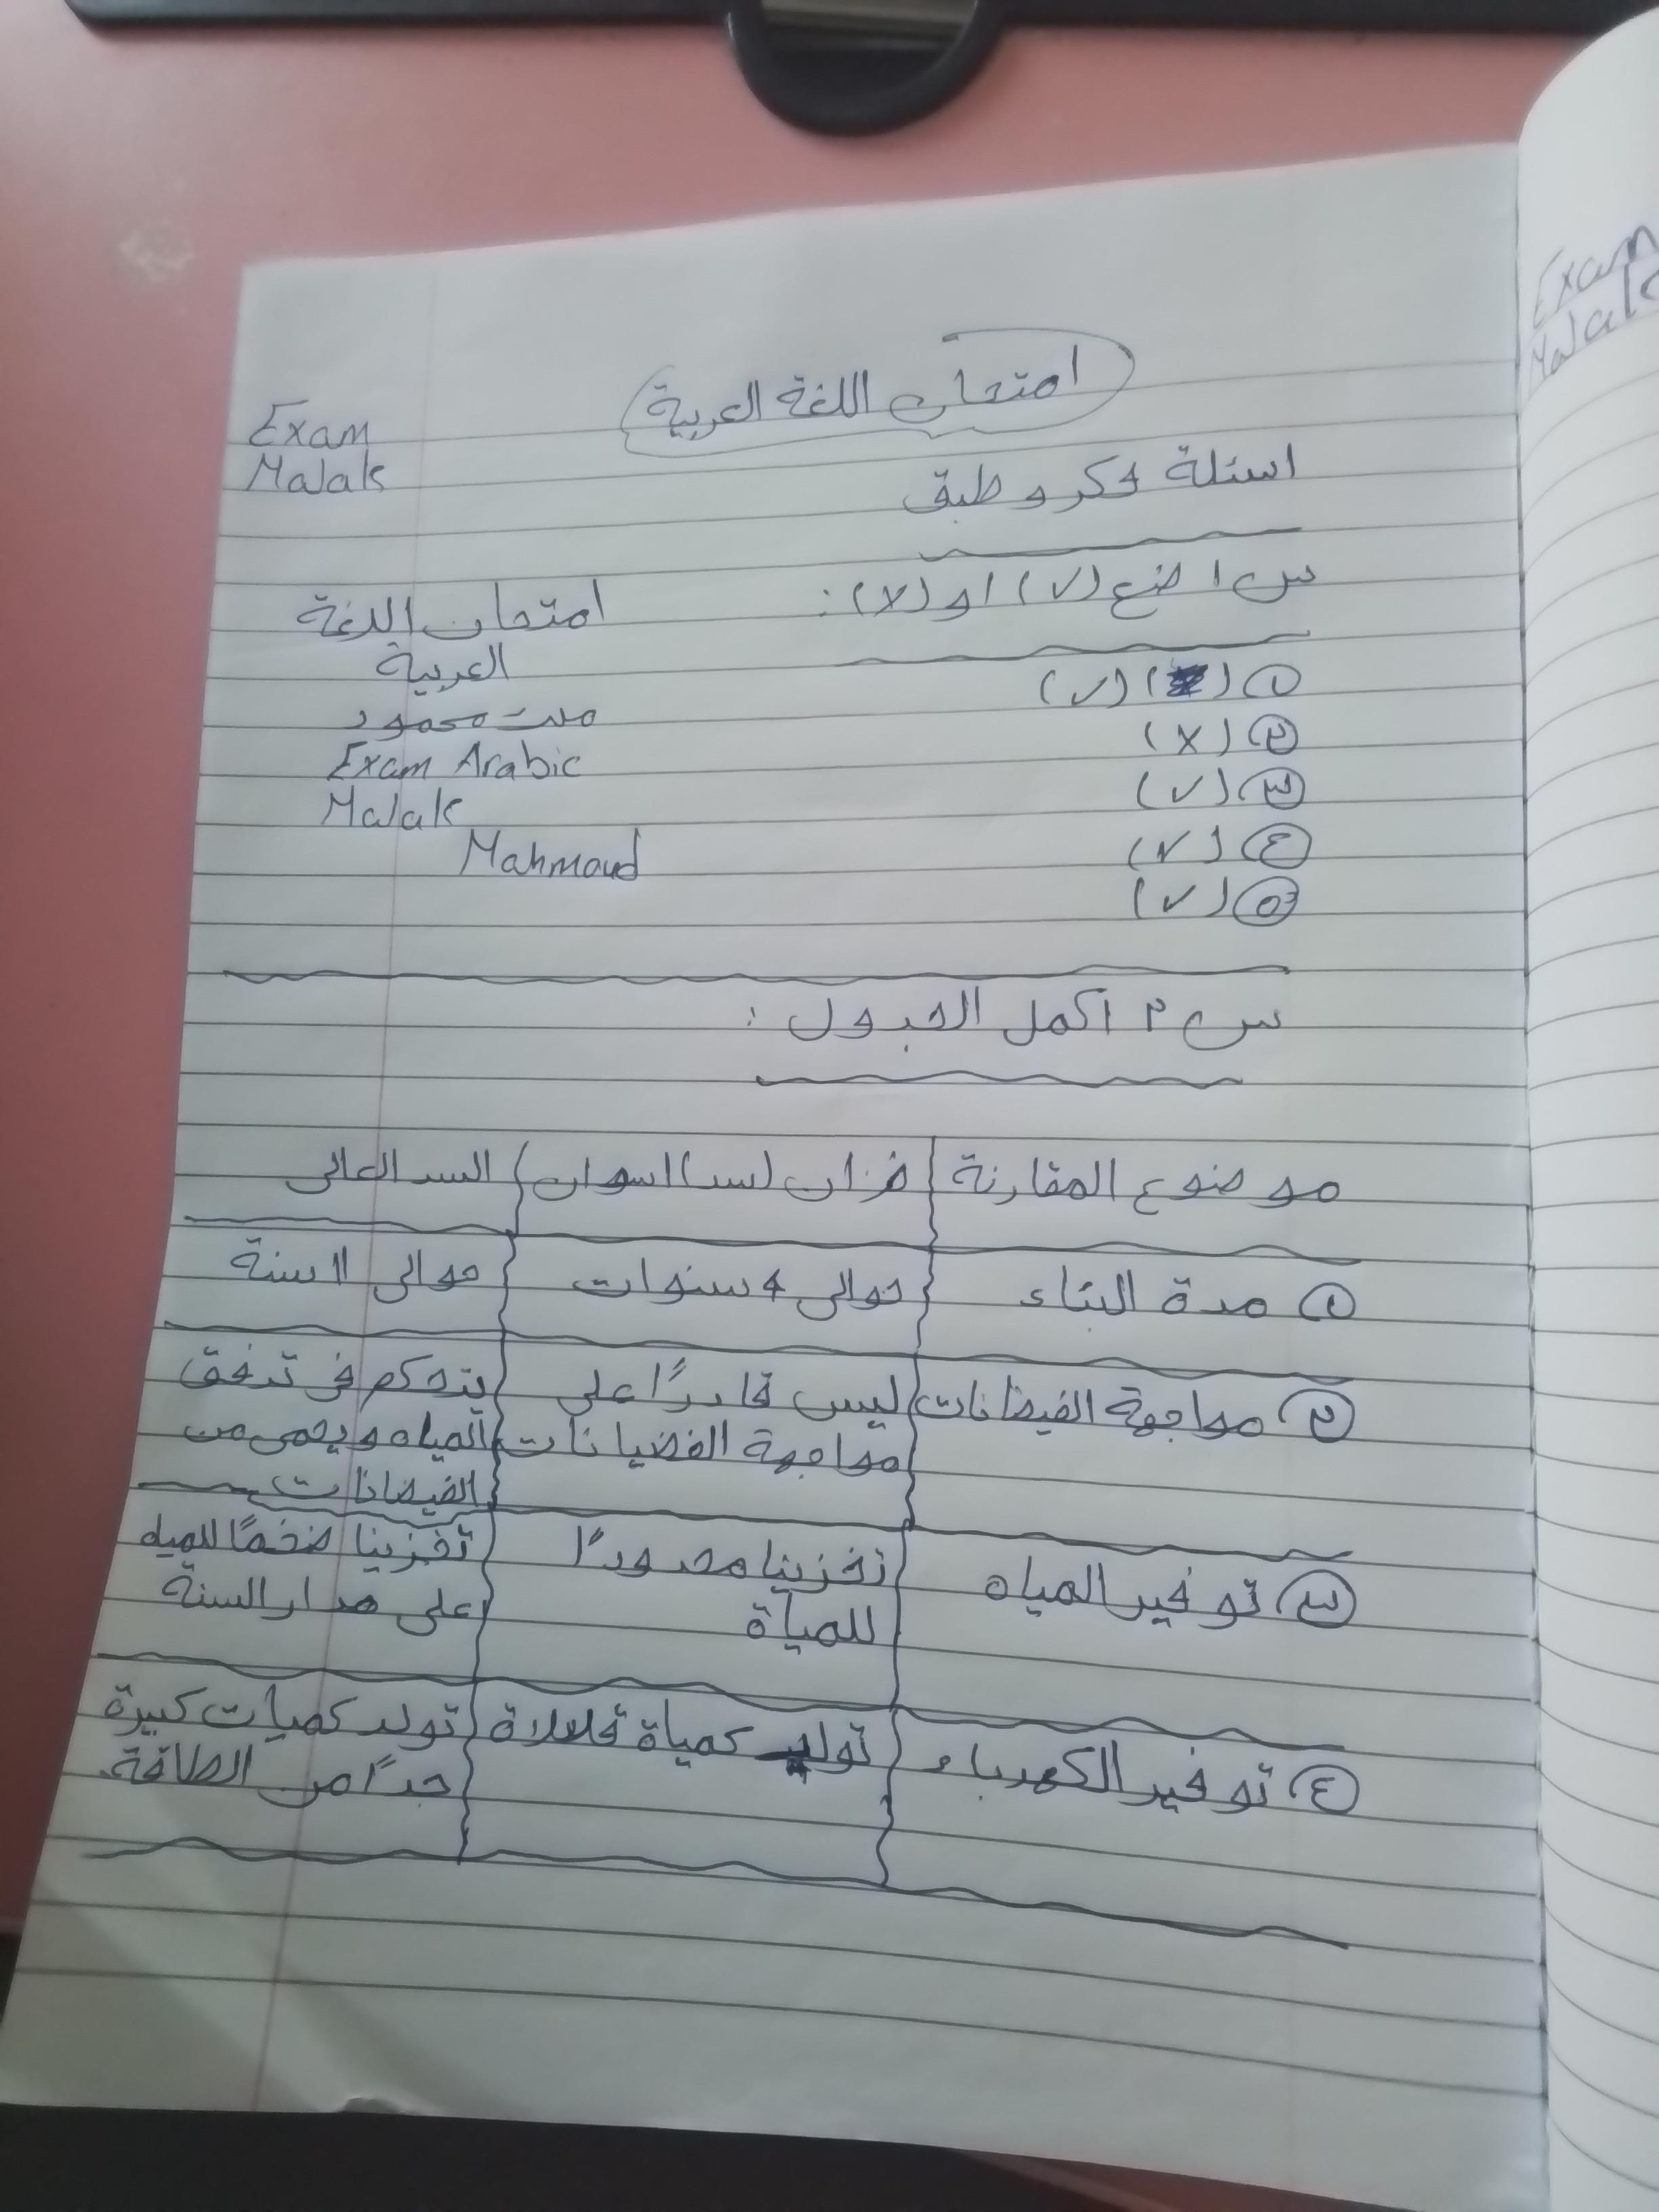 امتحان اللغة العربية
Exam
Malak
اسئلة فكر و طبق
س١ ضع (√) او (X) :
امتحان اللغة
العربية
ملك محمود
Exam Arabic
Malak
Mahmoud
① (√)
② (X)
③ (√)
④ (√)
⑤ (√)
س٢ اكمل الجدول :
موضوع المقارنة خزان (سد) اسوان السد العالى
① مدة البناء حوالى 4 سنوات حوالى ١١ سنة
② مواجهة الفيضانات ليس قادرًا على يتحكم فى تدفق
مواجهة الفضيانات المياه و يحمى من
الفيضانات
③ توفير المياه تخزينا محدودًا تخزينا ضخمًا للمياه
للمياة على مدار السنة
④ توفير الكهرباء تولد كمياة تولد كميات كبيرة
جدًا من الطاقة.
Exam
Malak